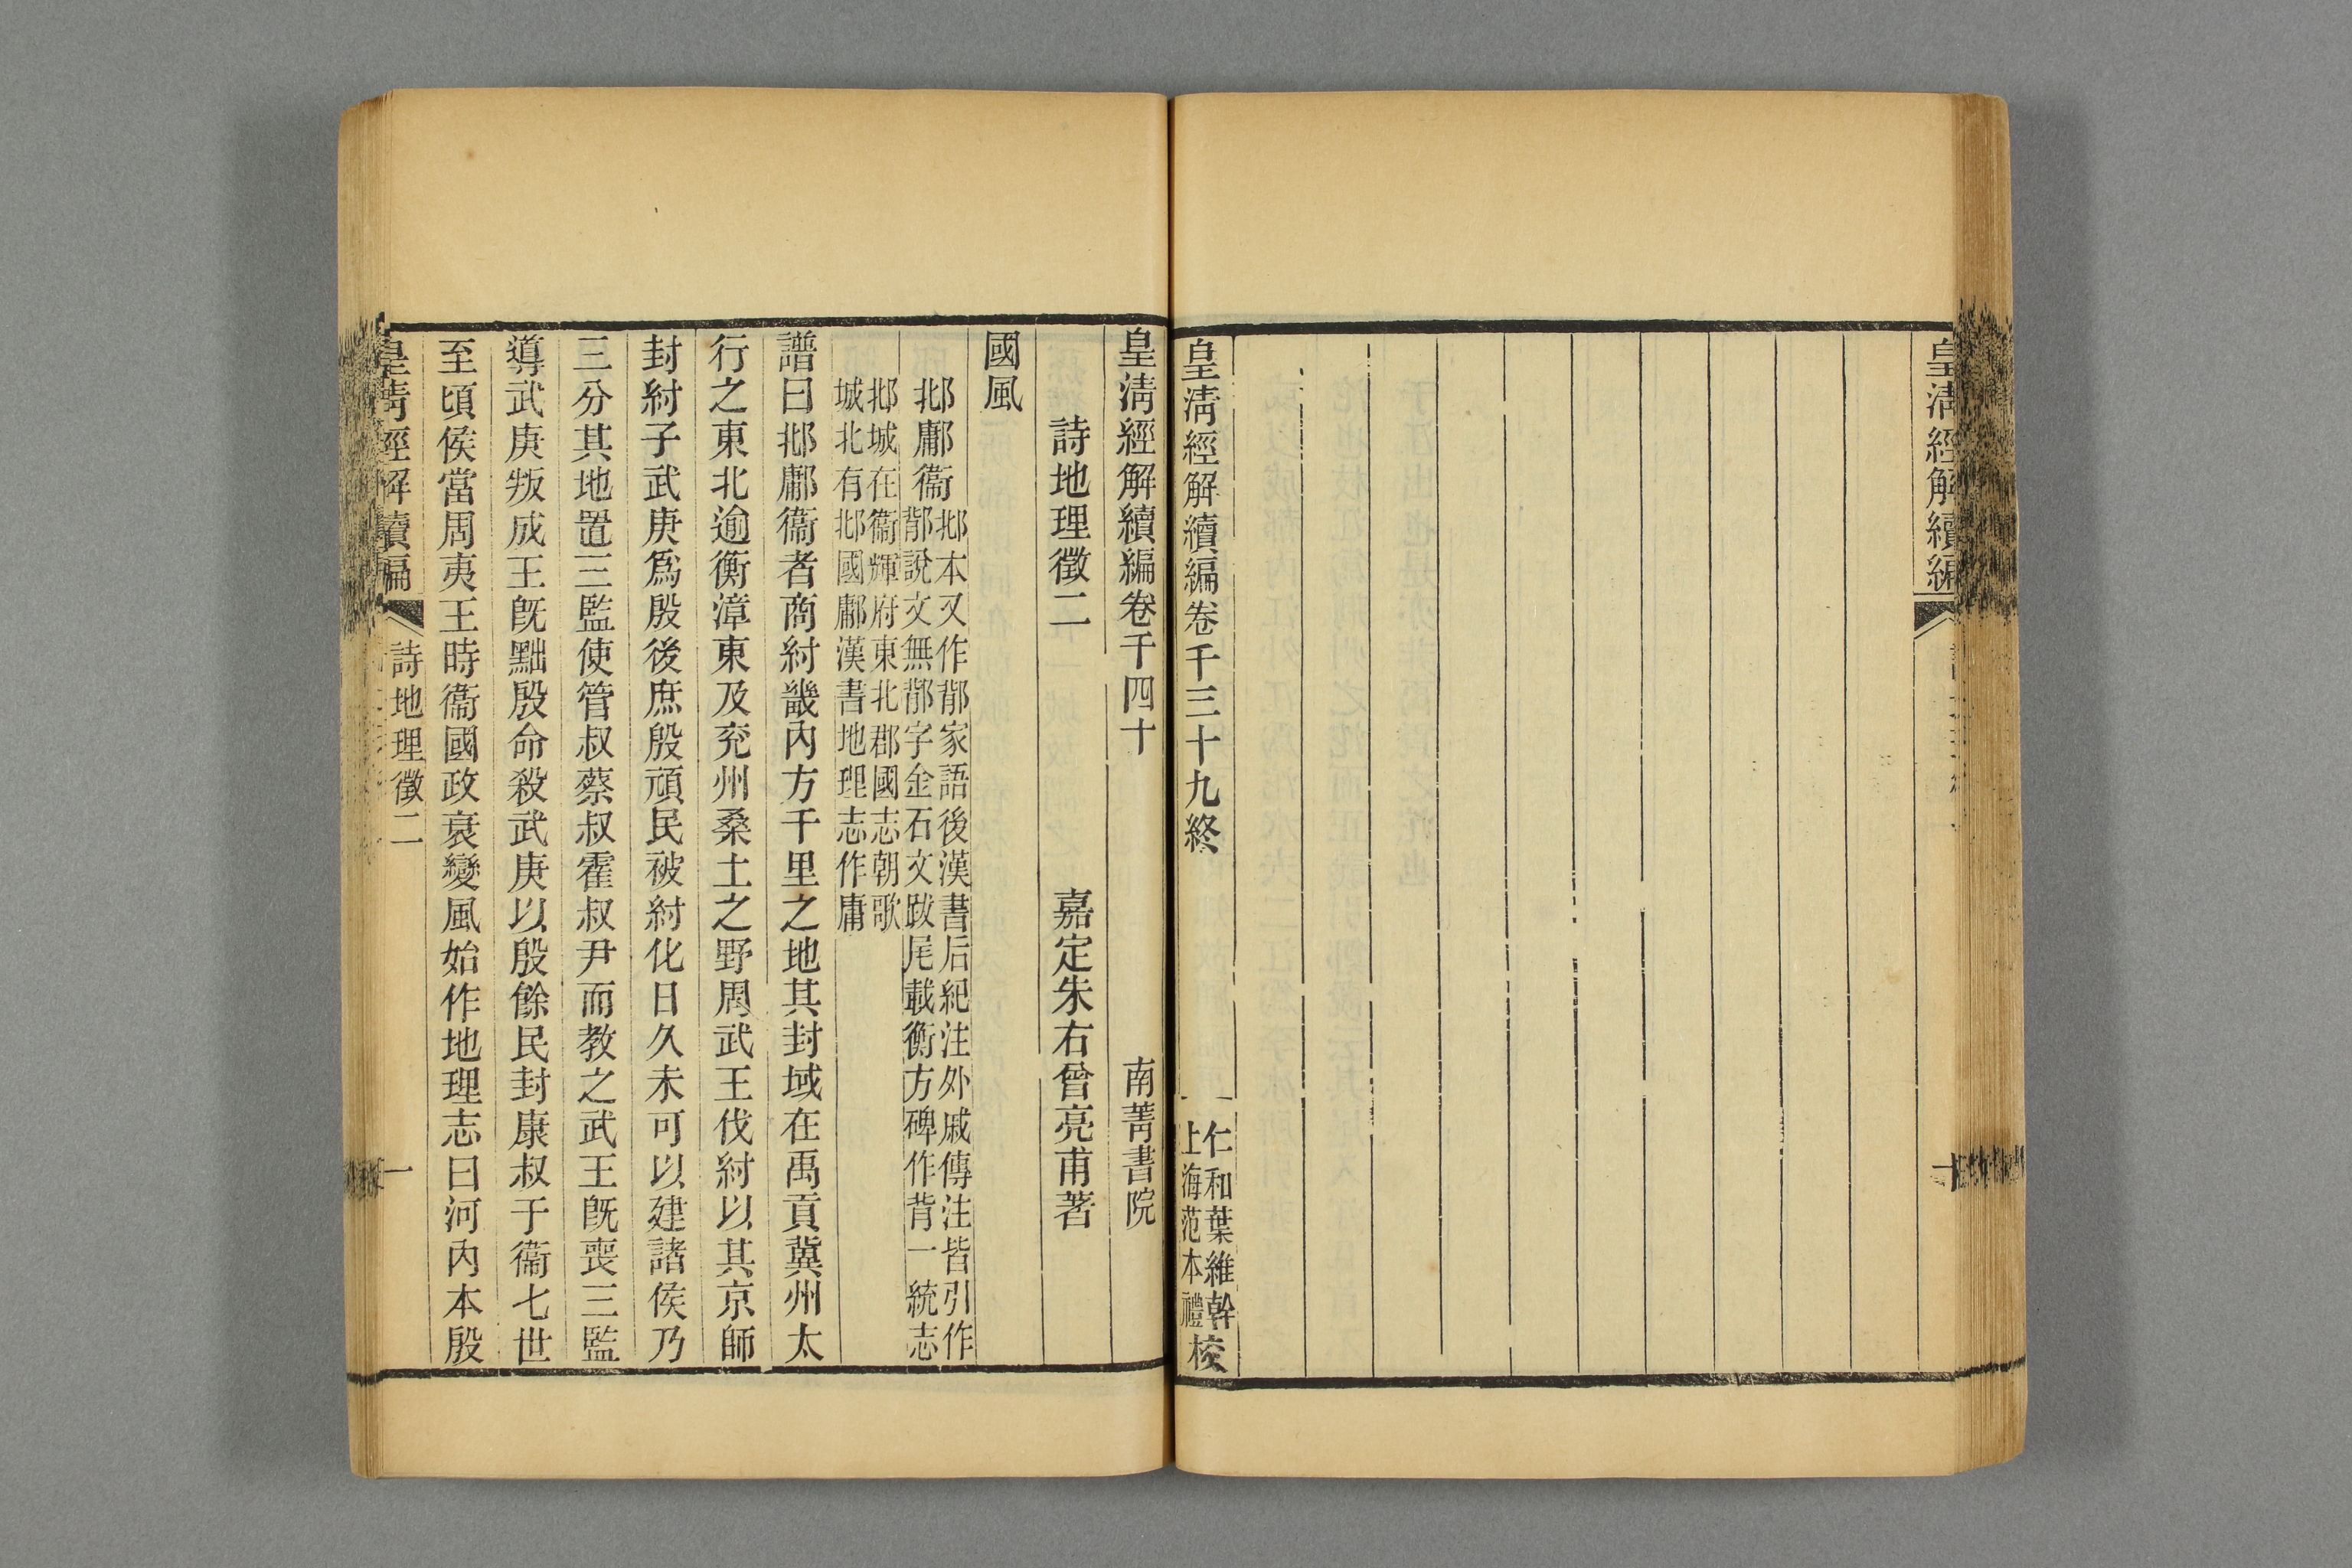 皇清經解續編
皇清經解續編卷千三十九終
仁和葉維幹
上海范本禮
校
皇清經解續編卷千四十
南菁書院
詩地理徵二
嘉定朱右曾亮甫著
國風
邶鄘衞
邶本又作鄁家語後漢書后紀注外戚傳注皆引作
鄁說文無鄁字金石文跋尾載衡方碑作背一統志
邶城在衞輝府東北郡國志朝歌
城北有邶國鄘漢書地理志作庸
譜曰邶鄘衞者商紂畿內方千里之地其封域在禹貢冀州太
行之東北逾衡漳東及兖州桑土之野周武王伐紂以其京師
封紂子武庚爲殷後庶殷頑民被紂化日久未可以建諸侯乃
三分其地置三監使管叔蔡叔霍叔尹而教之武王旣喪三監
導武庚叛成王旣黜殷命殺武庚以殷餘民封康叔于衞七世
至頃侯當周夷王時衞國政衰變風始作地理志曰河內本殷
皇清經解續編
詩地理徵二
一